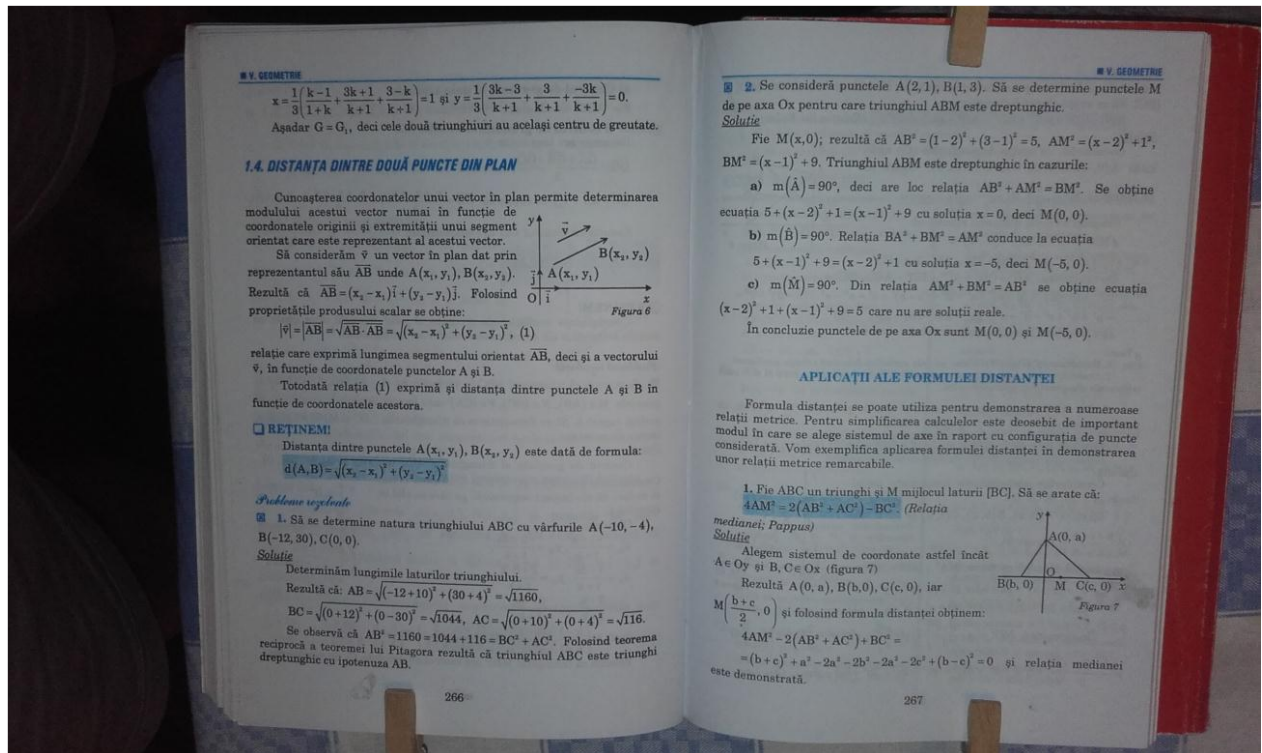 ■ V. GEOMETRIE
x = 1/3((k−1)/(1+k) + (3k+1)/(k+1) + (3−k)/(k+1)) = 1 și y = 1/3((3k−3)/(k+1) + 3/(k+1) + (−3k)/(k+1)) = 0.
Așadar G = G₁, deci cele două triunghiuri au același centru de greutate.
1.4. DISTANȚA DINTRE DOUĂ PUNCTE DIN PLAN
Cunoașterea coordonatelor unui vector în plan permite determinarea
modulului acestui vector numai în funcție de
coordonatele originii și extremității unui segment
orientat care este reprezentant al acestui vector.
Să considerăm v⃗ un vector în plan dat prin
reprezentantul său AB⃗ unde A(x₁, y₁), B(x₂, y₂).
Rezultă că AB⃗ = (x₂ − x₁)i⃗ + (y₂ − y₁)j⃗. Folosind
proprietățile produsului scalar se obține:
y
v⃗
B(x₂, y₂)
j⃗ A(x₁, y₁)
O i⃗ x
Figura 6
|v⃗| = |AB⃗| = √(AB⃗ · AB⃗) = √((x₂ − x₁)² + (y₂ − y₁)²), (1)
relație care exprimă lungimea segmentului orientat AB⃗, deci și a vectorului
v⃗, în funcție de coordonatele punctelor A și B.
Totodată relația (1) exprimă și distanța dintre punctele A și B în
funcție de coordonatele acestora.
❑ REȚINEM!
Distanța dintre punctele A(x₁, y₁), B(x₂, y₂) este dată de formula:
d(A,B) = √((x₂ − x₁)² + (y₂ − y₁)²)
Probleme rezolvate
1. Să se determine natura triunghiului ABC cu vârfurile A(−10, −4),
B(−12, 30), C(0, 0).
Soluție
Determinăm lungimile laturilor triunghiului.
Rezultă că: AB = √((−12+10)² + (30+4)²) = √1160,
BC = √((0+12)² + (0−30)²) = √1044, AC = √((0+10)² + (0+4)²) = √116.
Se observă că AB² = 1160 = 1044 + 116 = BC² + AC². Folosind teorema
reciprocă a teoremei lui Pitagora rezultă că triunghiul ABC este triunghi
dreptunghic cu ipotenuza AB.
266
■ V. GEOMETRIE
2. Se consideră punctele A(2, 1), B(1, 3). Să se determine punctele M
de pe axa Ox pentru care triunghiul ABM este dreptunghic.
Soluție
Fie M(x,0); rezultă că AB² = (1−2)² + (3−1)² = 5, AM² = (x−2)² + 1²,
BM² = (x−1)² + 9. Triunghiul ABM este dreptunghic în cazurile:
a) m(Â) = 90°, deci are loc relația AB² + AM² = BM². Se obține
ecuația 5 + (x−2)² + 1 = (x−1)² + 9 cu soluția x = 0, deci M(0, 0).
b) m(B̂) = 90°. Relația BA² + BM² = AM² conduce la ecuația
5 + (x−1)² + 9 = (x−2)² + 1 cu soluția x = −5, deci M(−5, 0).
c) m(M̂) = 90°. Din relația AM² + BM² = AB² se obține ecuația
(x−2)² + 1 + (x−1)² + 9 = 5 care nu are soluții reale.
În concluzie punctele de pe axa Ox sunt M(0, 0) și M(−5, 0).
APLICAȚII ALE FORMULEI DISTANȚEI
Formula distanței se poate utiliza pentru demonstrarea a numeroase
relații metrice. Pentru simplificarea calculelor este deosebit de important
modul în care se alege sistemul de axe în raport cu configurația de puncte
considerată. Vom exemplifica aplicarea formulei distanței în demonstrarea
unor relații metrice remarcabile.
1. Fie ABC un triunghi și M mijlocul laturii [BC]. Să se arate că:
4AM² = 2(AB² + AC²) − BC². (Relația
medianei; Pappus)
Soluție
Alegem sistemul de coordonate astfel încât
A ∈ Oy și B, C ∈ Ox (figura 7)
Rezultă A(0, a), B(b,0), C(c, 0), iar
M((b+c)/2, 0) și folosind formula distanței obținem:
y
A(0, a)
O
B(b, 0) M C(c, 0) x
Figura 7
4AM² − 2(AB² + AC²) + BC² =
= (b+c)² + a² − 2a² − 2b² − 2a² − 2c² + (b−c)² = 0 și relația medianei
este demonstrată.
267